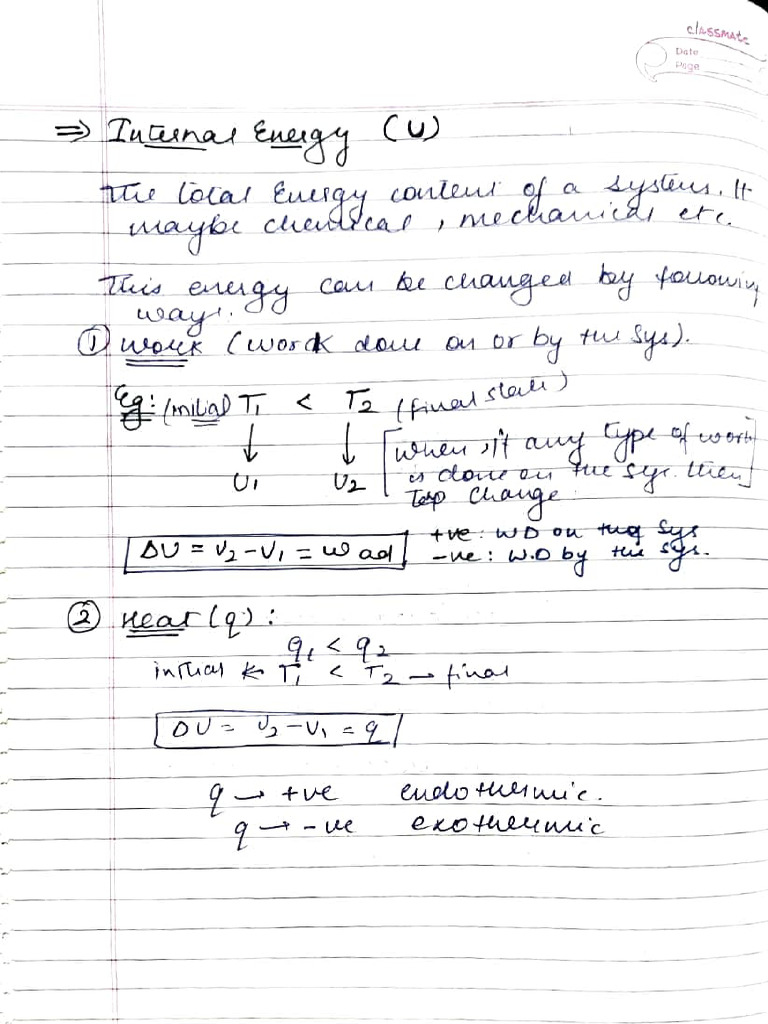 classmate
Date
Page
⇒ Internal Energy (U)
The total Energy content of a system. It
maybe chemical, mechanical etc.
This energy can be changed by following
ways.
① Work (work done on or by the sys).
Eg: (initial) T₁ < T₂ (final state)
↓ ↓ [when, if any type of work
U₁ U₂ is done on the sys. then]
Temp Change
ΔU = U₂ - U₁ = w ad +ve: WD on the sys
-ve: W.D by the sys.
② Heat (q):
q₁ < q₂
initial ← T₁ < T₂ → final
ΔU = U₂ - U₁ = q
q → +ve endothermic.
q → -ve exothermic